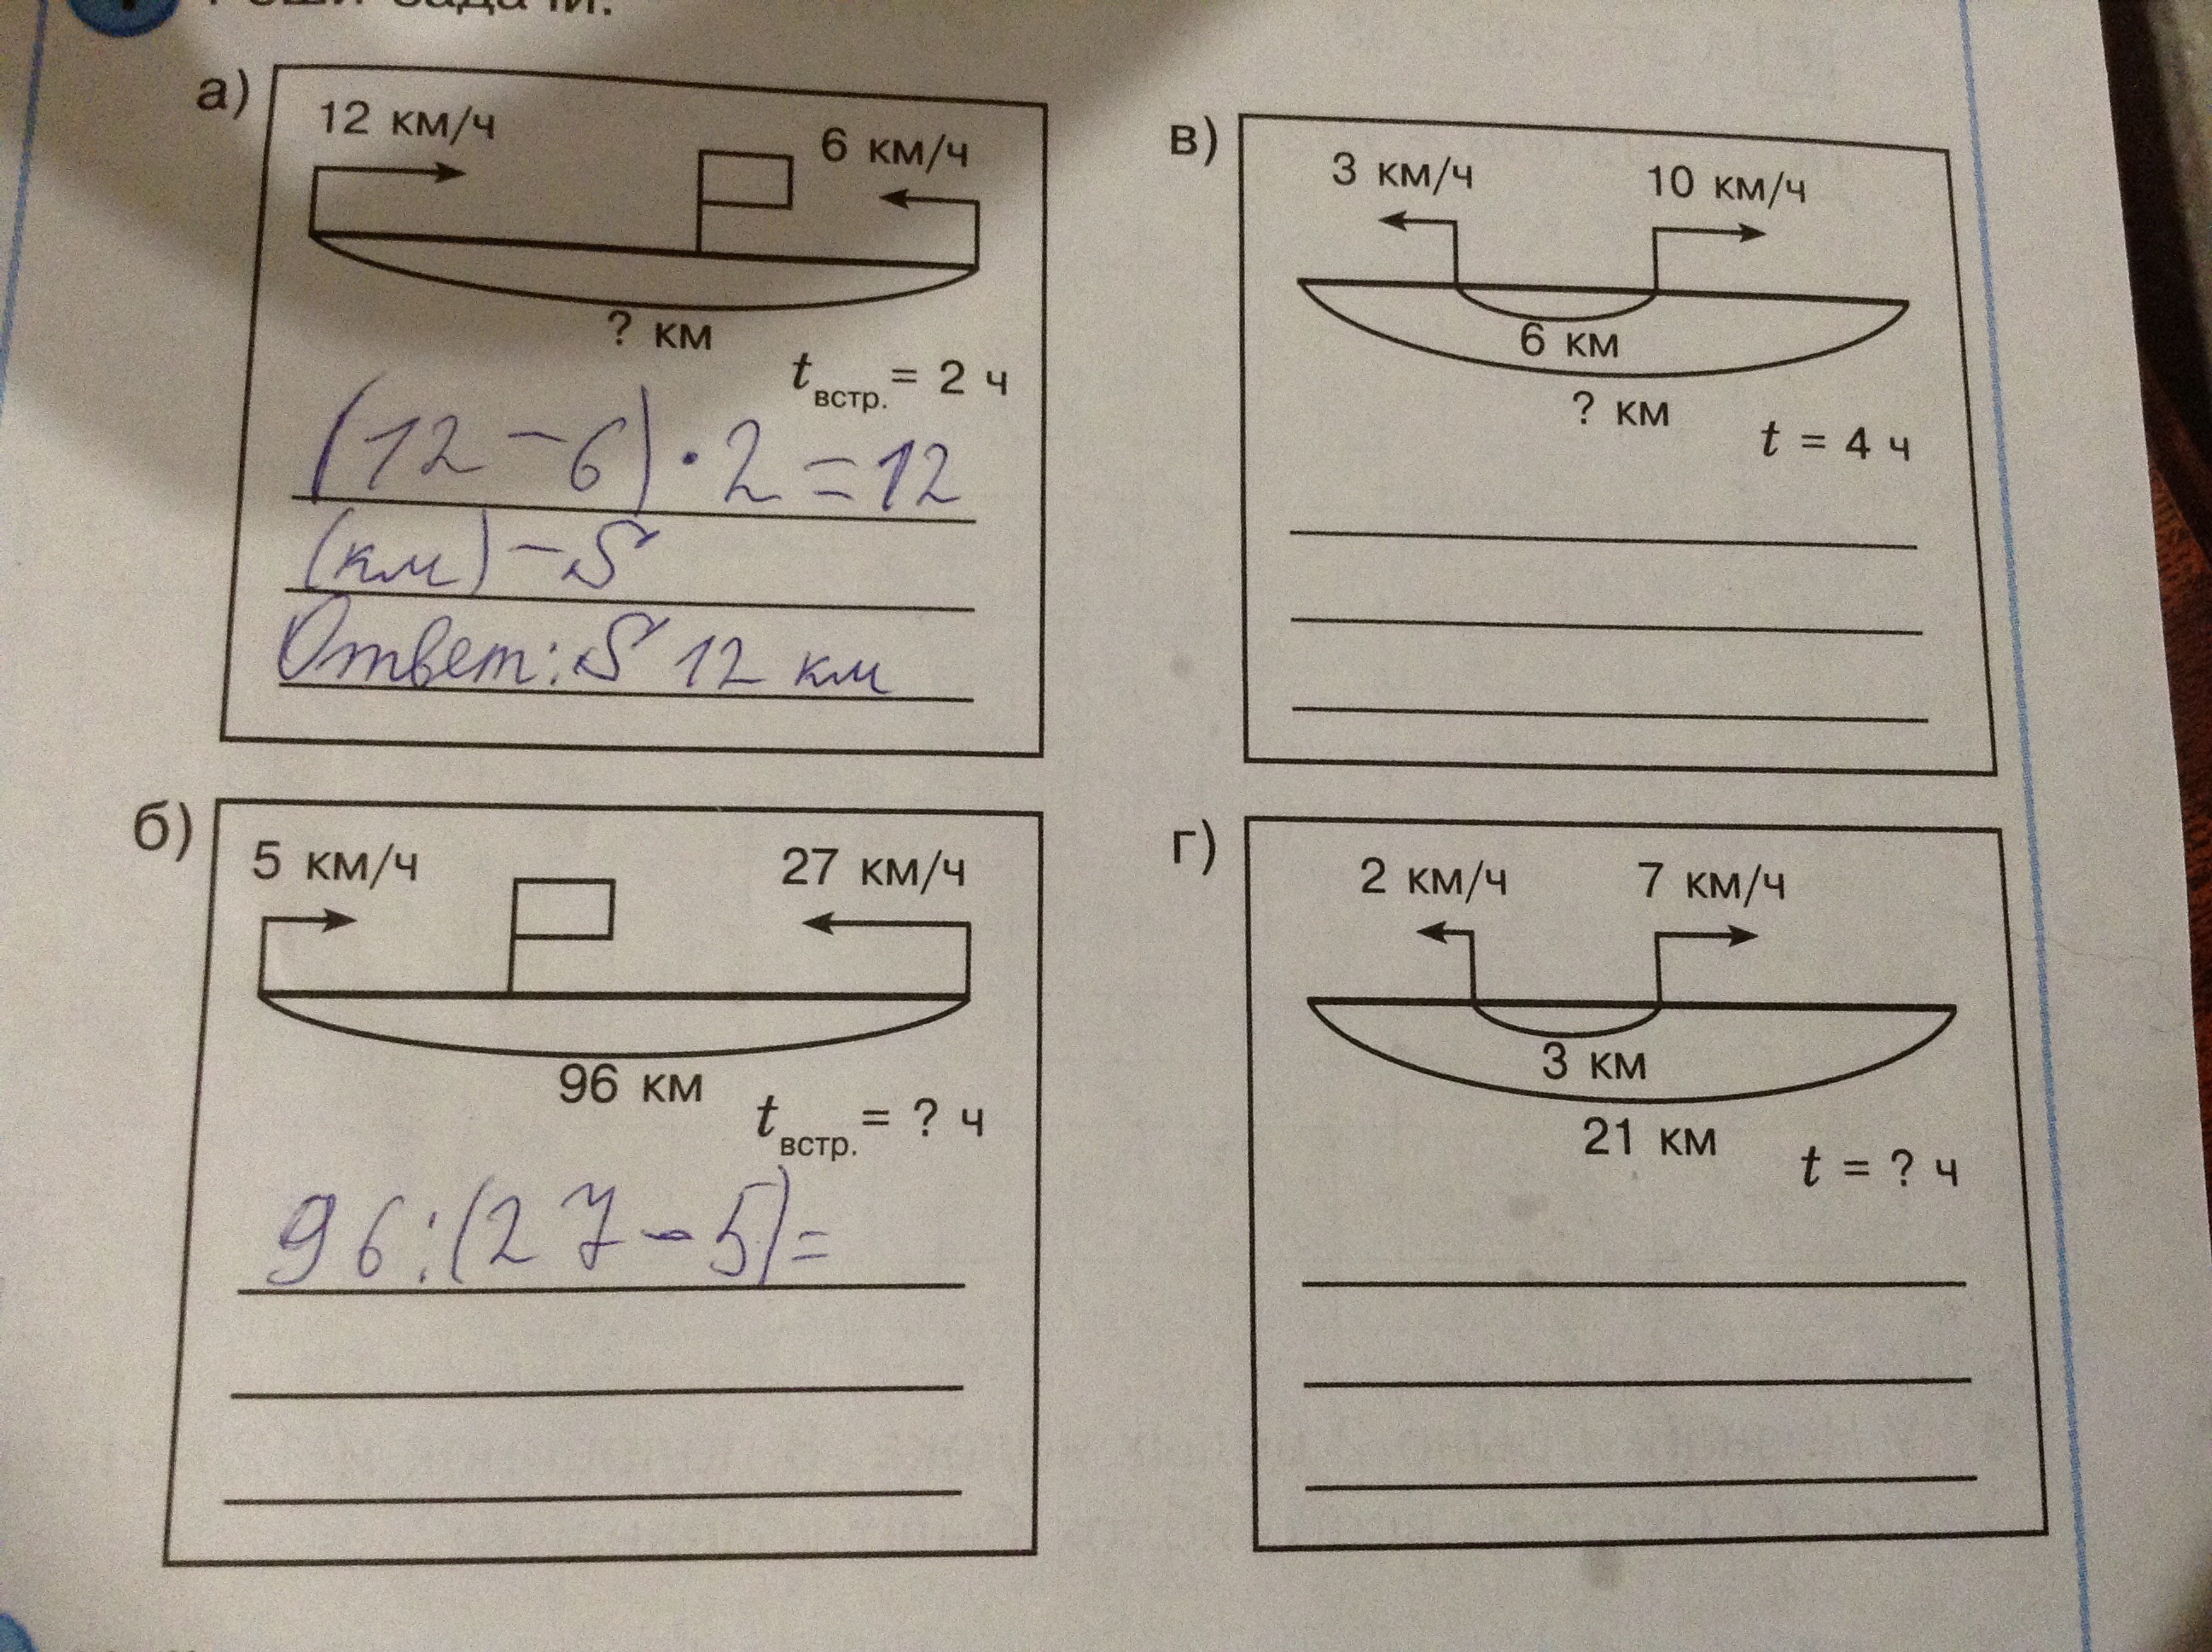 задачи.
а)
12 км/ч
6 км/ч
? км
tвстр. = 2 ч
(12 - 6) · 2 = 12
(км) - S
Ответ: S 12 км
б)
5 км/ч
27 км/ч
96 км
tвстр. = ? ч
96 : (27 - 5) =
в)
3 км/ч
10 км/ч
6 км
? км
t = 4 ч
г)
2 км/ч
7 км/ч
3 км
21 км
t = ? ч